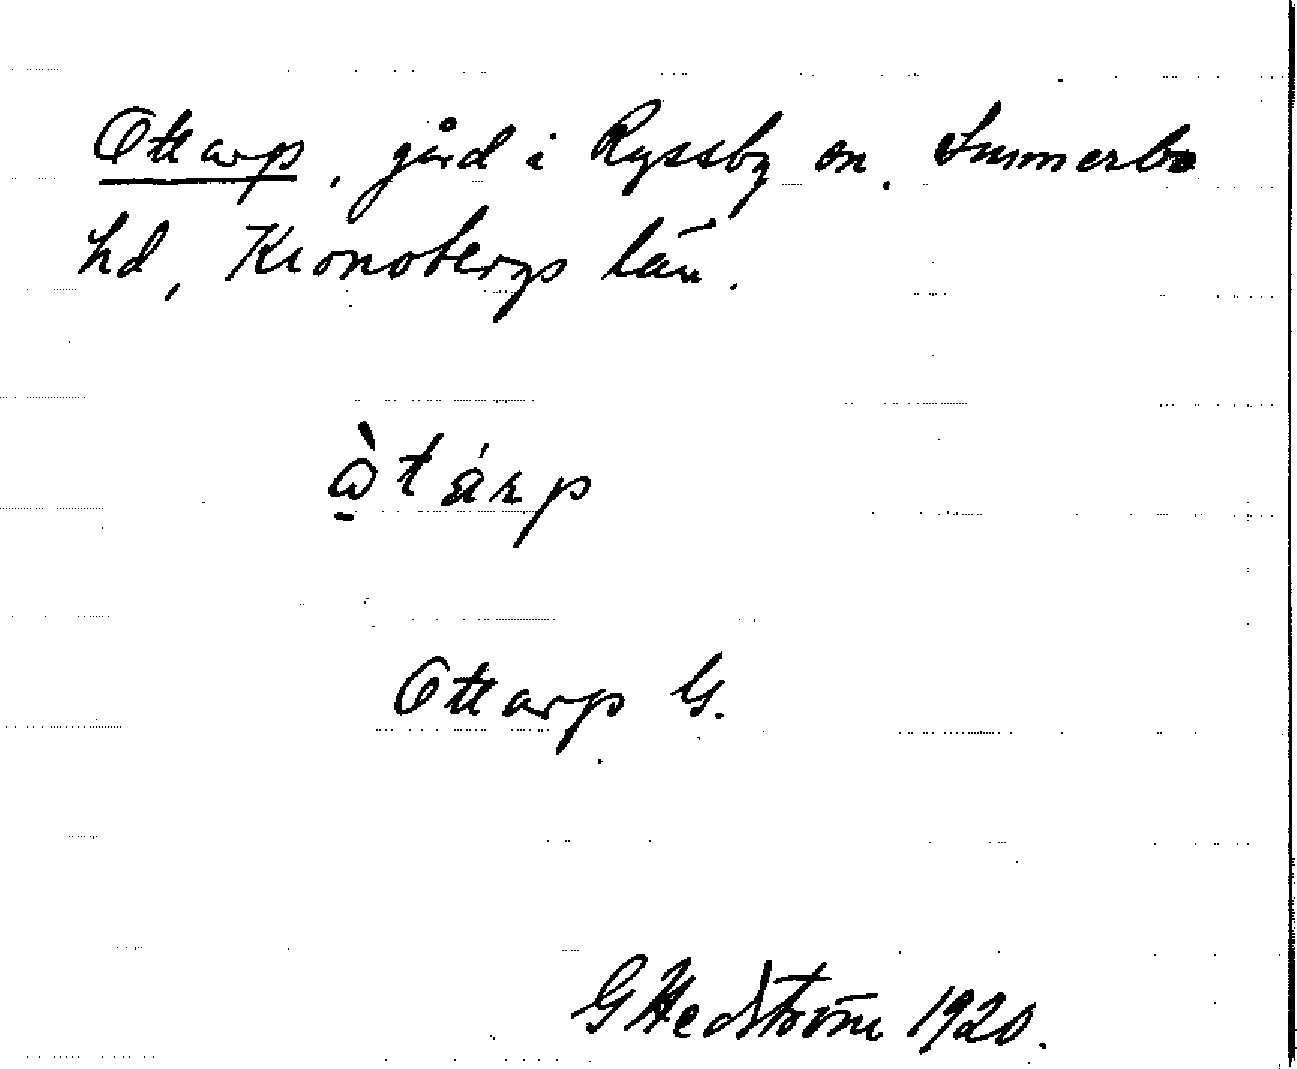 Ottarp, gård i Ryssby sn. Sunnerbo
hd, Kronobergs län.
òt árp
Ottarp G.
G Hedström 1920.